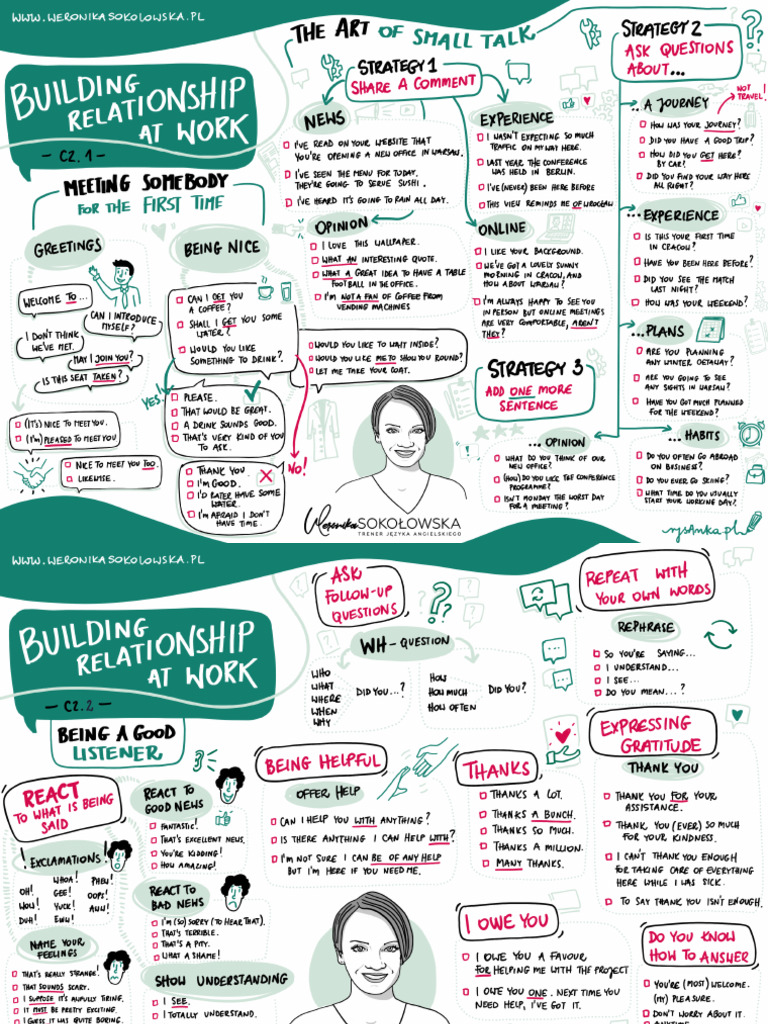 WWW.WERONIKASOKOLOWSKA.PL
BUILDING
RELATIONSHIP
AT WORK
- CZ. 1 -
MEETING SOMEBODY
FOR THE FIRST TIME
GREETINGS
WELCOME TO...
CAN I INTRODUCE
MYSELF?
I DON'T THINK
WE'VE MET.
MAY I JOIN YOU?
IS THIS SEAT TAKEN?
(IT'S) NICE TO MEET YOU.
(I'M) PLEASED TO MEET YOU
NICE TO MEET YOU TOO.
LIKEWISE.
BEING NICE
CAN I GET YOU
A COFFEE?
SHALL I GET YOU SOME
WATER?
WOULD YOU LIKE
SOMETHING TO DRINK?
WOULD YOU LIKE TO WAIT INSIDE?
WOULD YOU LIKE ME TO SHOW YOU ROUND?
LET ME TAKE YOUR COAT.
YES!
PLEASE.
THAT WOULD BE GREAT.
A DRINK SOUNDS GOOD.
THAT'S VERY KIND OF YOU
TO ASK.
NO!
THANK YOU
I'M GOOD.
I'D RATER HAVE SOME
WATER.
I'M AFRAID I DON'T
HAVE TIME.
THE ART OF SMALL TALK
STRATEGY 1
SHARE A COMMENT
NEWS
I'VE READ ON YOUR WEBSITE THAT
YOU'RE OPENING A NEW OFFICE IN WARSAW.
I'VE SEEN THE MENU FOR TODAY.
THEY'RE GOING TO SERVE SUSHI.
I'VE HEARD IT'S GOING TO RAIN ALL DAY.
OPINION
I LOVE THIS WALLPAPER.
WHAT AN INTERESTING QUOTE.
WHAT A GREAT IDEA TO HAVE A TABLE
FOOTBALL IN THE OFFICE.
I'M NOT A FAN OF COFFEE FROM
VENDING MACHINES
EXPERIENCE
I WASN'T EXPECTING SO MUCH
TRAFFIC ON MY WAY HERE.
LAST YEAR THE CONFERENCE
WAS HELD IN BERLIN.
I'VE (NEVER) BEEN HERE BEFORE
THIS VIEW REMINDS ME OF WROCŁAW
ONLINE
I LIKE YOUR BACKGROUND.
WE'VE GOT A LOVELY SUNNY
MORNING IN CRACOW, AND
HOW ABOUT WARSAW?
I'M ALWAYS HAPPY TO SEE YOU
IN PERSON BUT ONLINE MEETINGS
ARE VERY COMFORTABLE, AREN'T
THEY?
STRATEGY 3
ADD ONE MORE
SENTENCE
... OPINION
WHAT DO YOU THINK OF OUR
NEW OFFICE?
(HOW) DO YOU LIKE THE CONFERENCE
PROGRAMME?
ISN'T MONDAY THE WORST DAY
FOR A MEETING?
STRATEGY 2
ASK QUESTIONS
ABOUT...
... A JOURNEY
NOT
TRAVEL!
HOW WAS YOUR JOURNEY?
DID YOU HAVE A GOOD TRIP?
HOW DID YOU GET HERE?
BY CAR?
DID YOU FIND YOUR WAY HERE
ALL RIGHT?
...EXPERIENCE
IS THIS YOUR FIRST TIME
IN CRACOW?
HAVE YOU BEEN HERE BEFORE?
DID YOU SEE THE MATCH
LAST NIGHT?
HOW WAS YOUR WEEKEND?
...PLANS
ARE YOU PLANNING
ANY WINTER GETAWAY?
ARE YOU GOING TO SEE
ANY SIGHTS IN WARSAW?
HAVE YOU GOT MUCH PLANNED
FOR THE WEEKEND?
... HABITS
DO YOU OFTEN GO ABROAD
ON BUSINESS?
DO YOU EVER GO SKIING?
WHAT TIME DO YOU USUALLY
START YOUR WORKING DAY?
Weronika SOKOŁOWSKA
TRENER JĘZYKA ANGIELSKIEGO
rysAnka.pl
WWW.WERONIKASOKOLOWSKA.PL
BUILDING
RELATIONSHIP
AT WORK
- CZ. 2 -
BEING A GOOD
LISTENER
REACT
TO WHAT IS BEING
SAID
! EXCLAMATIONS!
OH! WHOA! PHEW!
WOW! GEE! OOPS!
DUH! YUCK! AWW!
EWW!
NAME YOUR
FEELINGS
THAT'S REALLY STRANGE!
THAT SOUNDS SCARY.
I SUPPOSE IT'S AWFULLY TIRING.
IT MUST BE PRETTY EXCITING.
I GUESS IT WAS QUITE BORING.
REACT TO
GOOD NEWS
FANTASTIC!
THAT'S EXCELLENT NEWS.
YOU'RE KIDDING!
HOW AMAZING!
REACT TO
BAD NEWS
I'M (SO) SORRY (TO HEAR THAT).
THAT'S TERRIBLE.
THAT'S A PITY.
WHAT A SHAME!
SHOW UNDERSTANDING
I SEE.
I TOTALLY UNDERSTAND.
ASK
FOLLOW-UP
QUESTIONS
WH-QUESTION
WHO
WHAT
WHERE
WHEN
WHY
DID YOU...?
HOW
HOW MUCH
HOW OFTEN
DID YOU?
REPEAT WITH
YOUR OWN WORDS
REPHRASE
SO YOU'RE SAYING...
I UNDERSTAND...
I SEE...
DO YOU MEAN...?
BEING HELPFUL
OFFER HELP
CAN I HELP YOU WITH ANYTHING?
IS THERE ANYTHING I CAN HELP WITH?
I'M NOT SURE I CAN BE OF ANY HELP
BUT I'M HERE IF YOU NEED ME.
THANKS
THANKS A LOT.
THANKS A BUNCH.
THANKS SO MUCH.
THANKS A MILLION.
MANY THANKS.
EXPRESSING
GRATITUDE
THANK YOU
THANK YOU FOR YOUR
ASSISTANCE.
THANK YOU (EVER) SO MUCH
FOR YOUR KINDNESS.
I CAN'T THANK YOU ENOUGH
FOR TAKING CARE OF EVERYTHING
HERE WHILE I WAS SICK.
TO SAY THANK YOU ISN'T ENOUGH.
I OWE YOU
I OWE YOU A FAVOUR
FOR HELPING ME WITH THE PROJECT
I OWE YOU ONE. NEXT TIME YOU
NEED HELP, I'VE GOT IT.
DO YOU KNOW
HOW TO ANSWER
YOU'RE (MOST) WELCOME.
(MY) PLEASURE.
DON'T WORRY ABOUT IT.